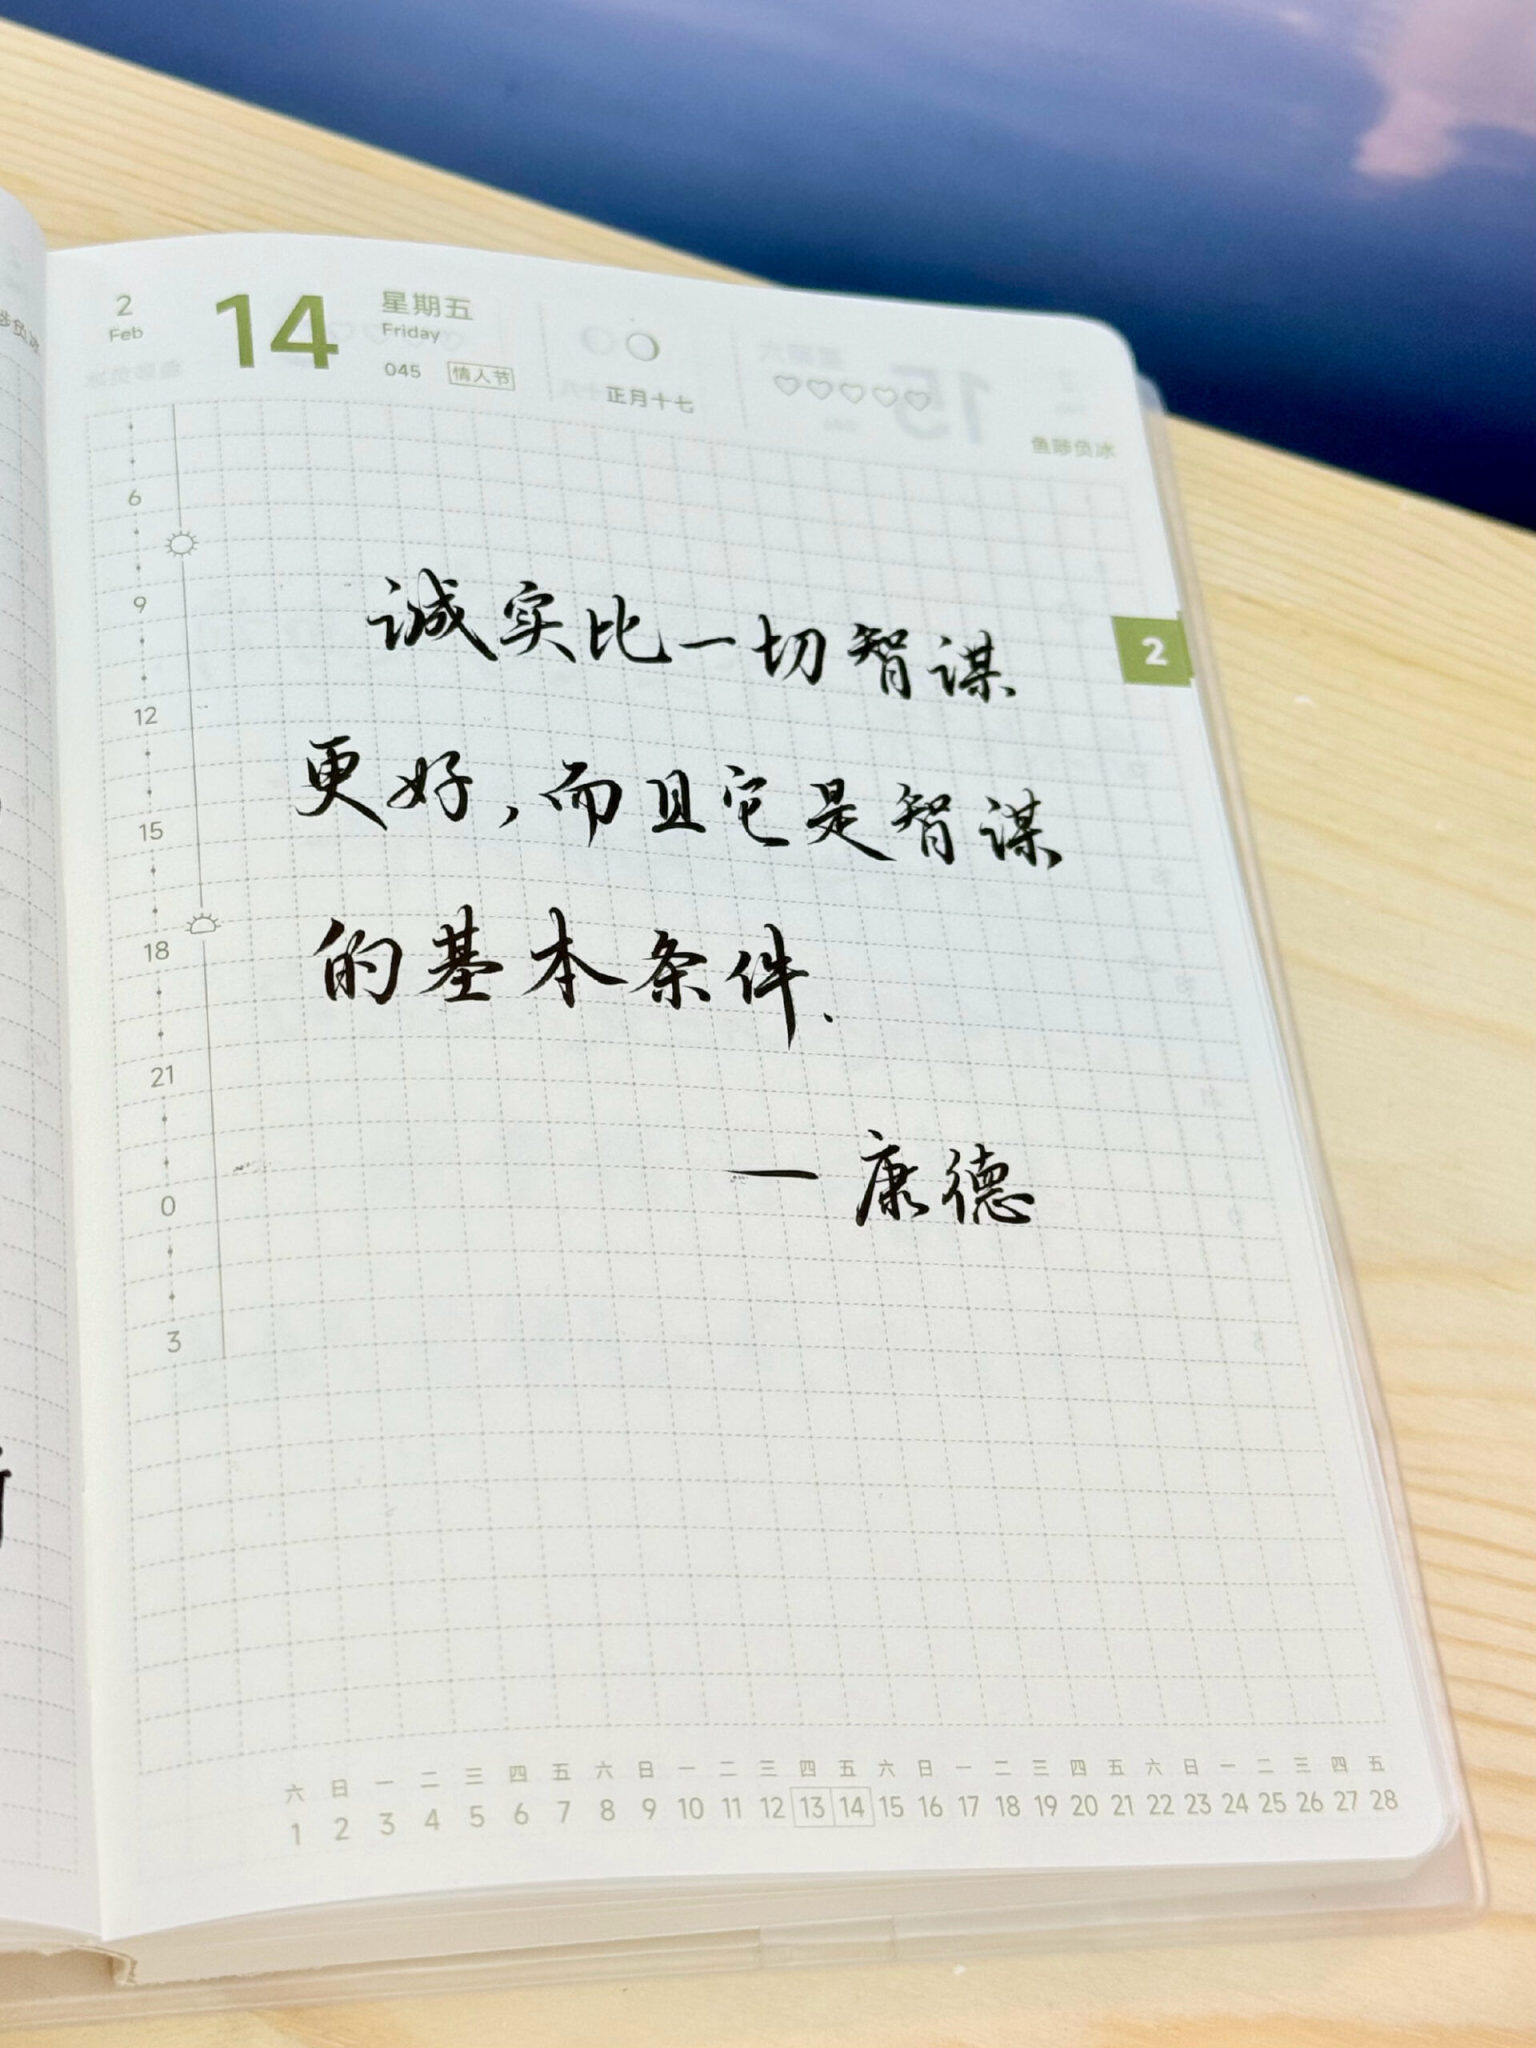 2
Feb
14
星期五
Friday
045 情人节
正月十七
鱼陟负冰
6
9
12
15
18
21
0
3
2
诚实比一切智谋
更好,而且它是智谋
的基本条件.
一康德
六 日 一 二 三 四 五 六 日 一 二 三 四 五 六 日 一 二 三 四 五 六 日 一 二 三 四 五
1 2 3 4 5 6 7 8 9 10 11 12 13 14 15 16 17 18 19 20 21 22 23 24 25 26 27 28